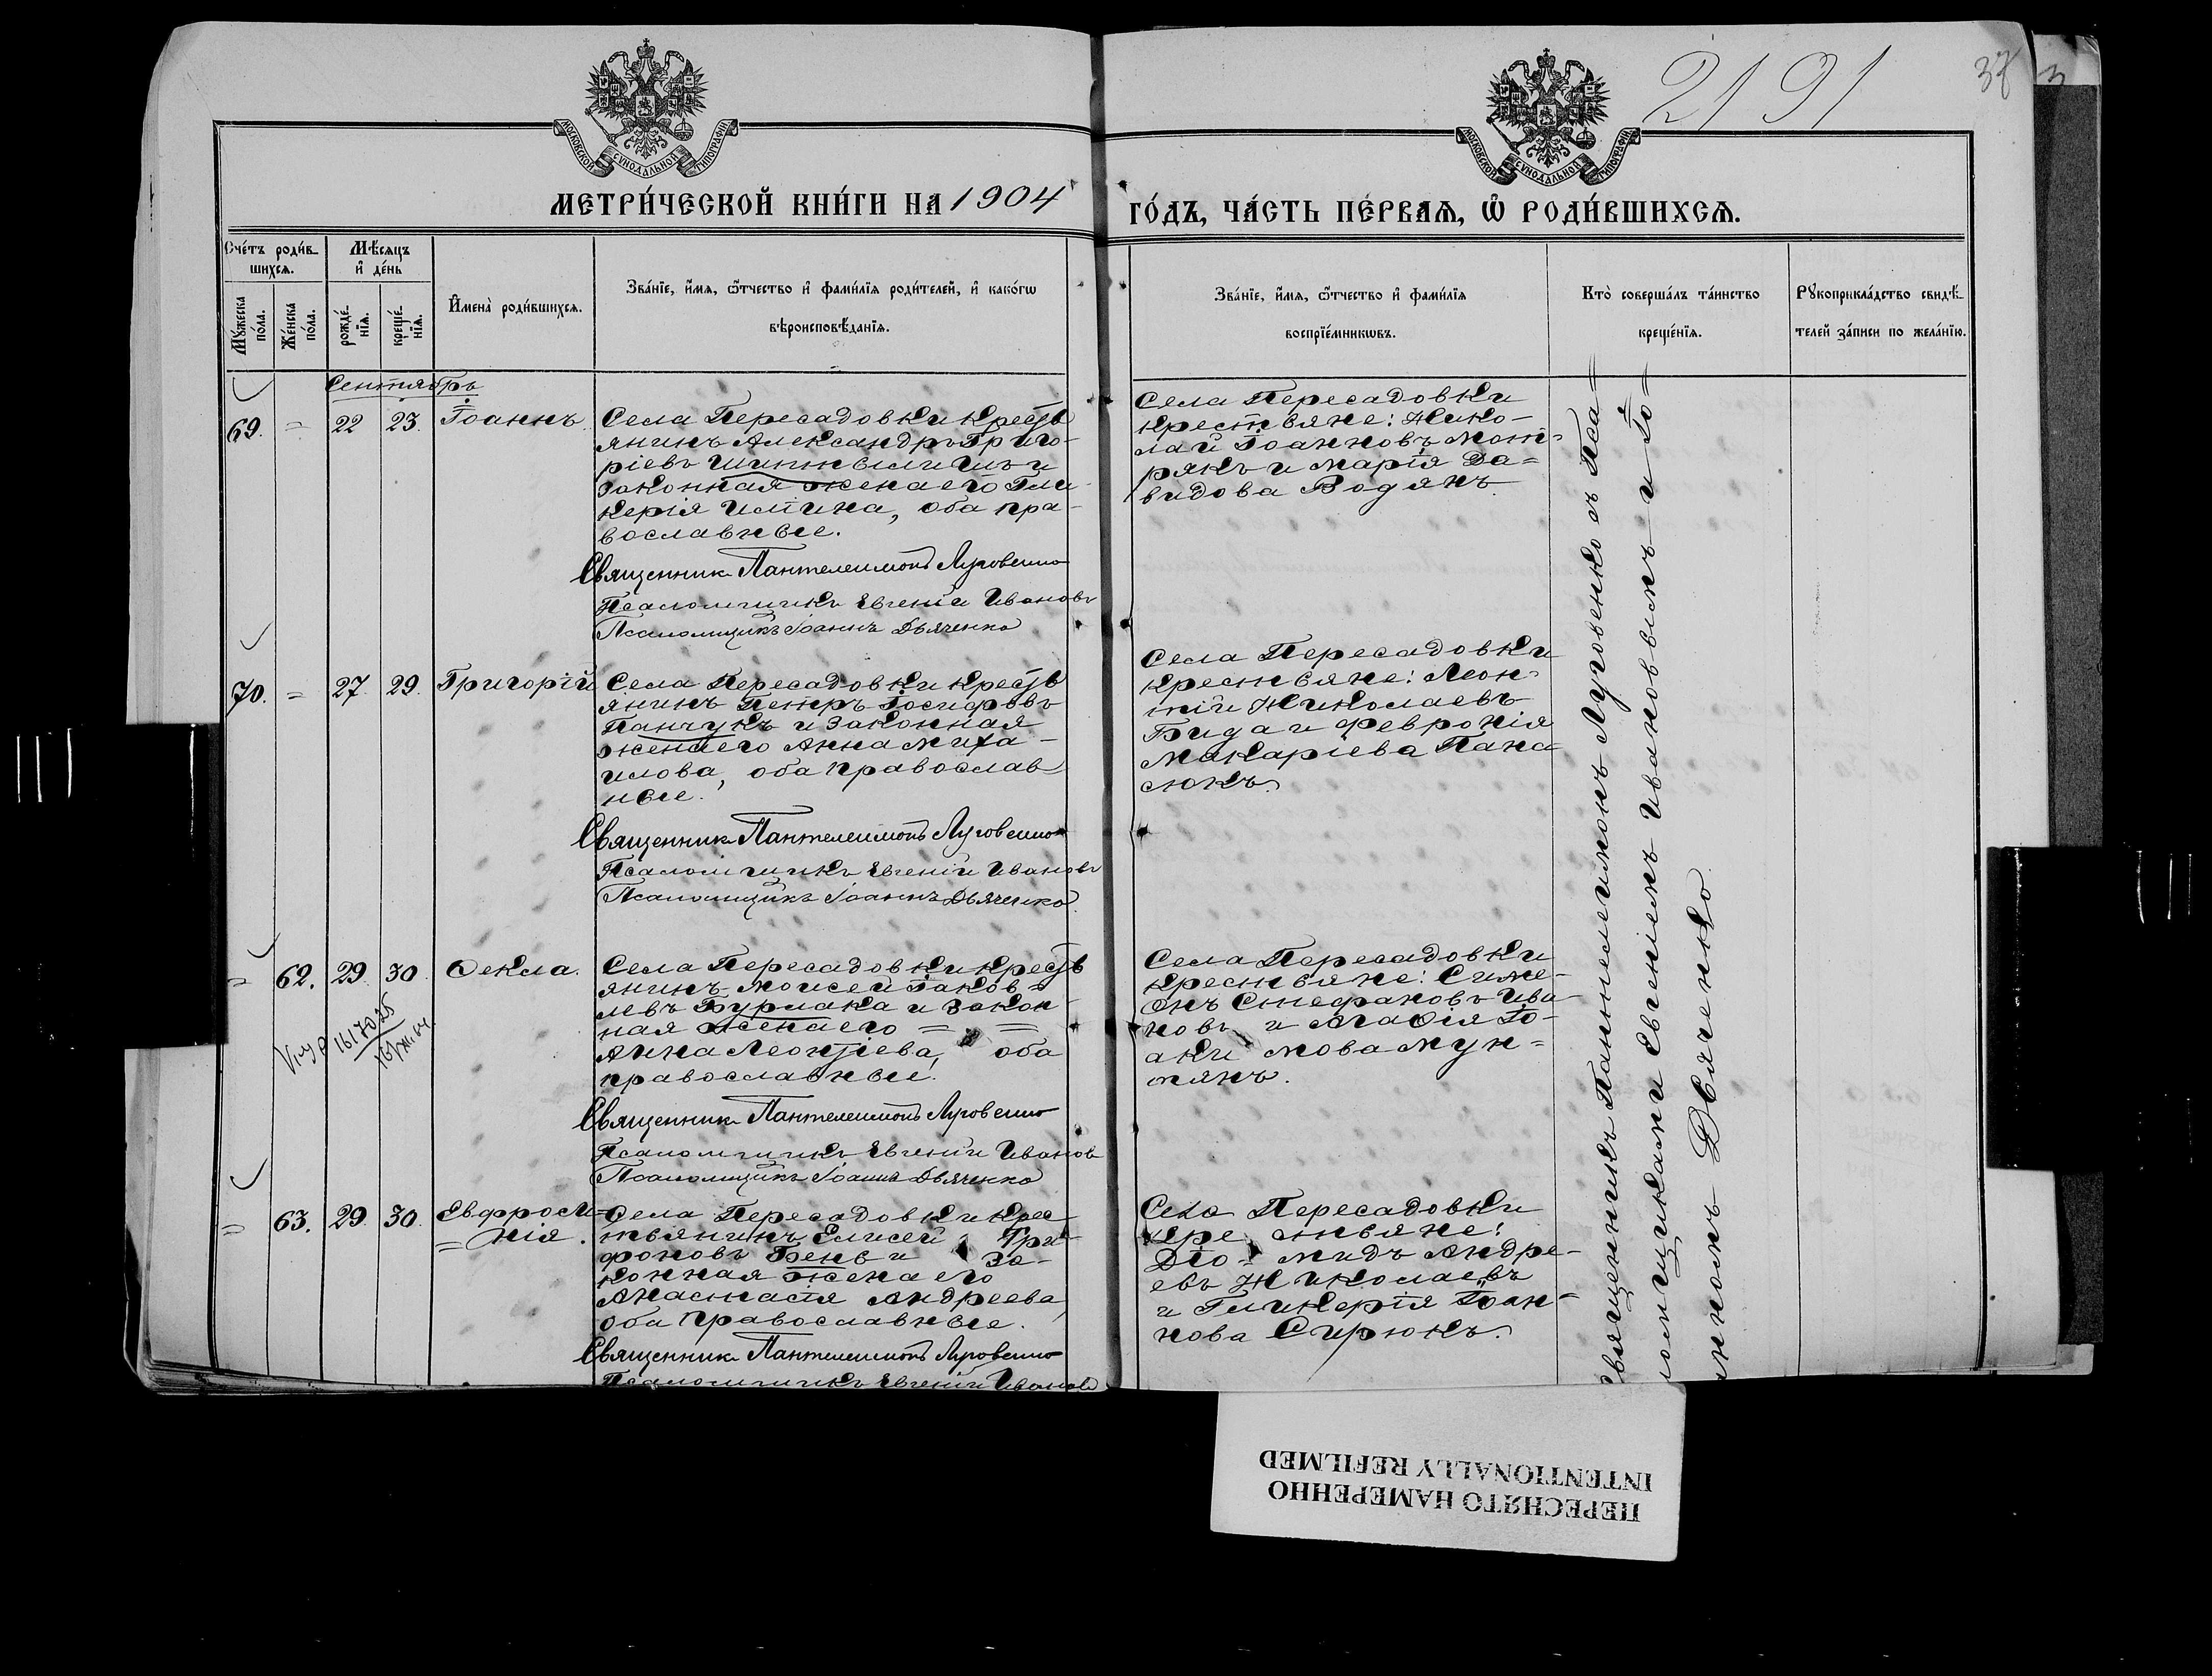 2191
37
МОСКОВСКОЙ СУНОДАЛЬНОЙ ТИПОГРАФІИ
МОСКОВСКОЙ СУНОДАЛЬНОЙ ТИПОГРАФІИ
МЕТРИ́ЧЕСКОЙ КНИ́ГИ НА 1904
ГО́ДЪ, ЧА́СТЬ ПЕ́РВАѦ, Ѿ РОДИ́ВШИХСѦ.
Сче́тъ роди́в-
шихсѧ.
Мѣ́сѧцъ
и҆ де́нь
Мꙋ́жеска
по́ла.
Же́нска
по́ла.
рожде́-
нїѧ.
креще́-
нїѧ.
И҆мена̀ роди́вшихсѧ.
Зва́нїе, и҆́мѧ, ѻ҆́тчество и҆ фами́лїѧ роди́телей, и҆ како́гѡ
вѣроисповѣ́данїѧ.
Зва́нїе, и҆́мѧ, ѻ҆́тчество и҆ фами́лїѧ
воспрїе́мникѡвъ.
Кто̀ соверша́лъ та́инство
креще́нїѧ.
Рꙋкоприкла́дство свидѣ́-
телей за́писи по жела́нїю.
Сентябрь
69. = 22 23. Іоаннъ.
Села Пересадовки кресть
янинъ Александръ Григо-
ріевъ
законная жена его Гли-
керія
оба пра-
вославные.
Священник Пантелеимонъ Луговенко
Псаломщикъ Евгеній Ивановъ
Псаломщикъ Іоаннъ Дьяченко
Села Пересадовки
крестьяне: Нико-
лай Іоанновъ Мот-
рякъ и Марія Да=
видова Водянъ.
70. = 27. 29. Григорій
Села Пересадовки кресть
янинъ Петръ Іосифовъ
Панчукъ и законная
жена его Анна Миха-
илова, оба православ
ные.
Священник Пантелеимонъ Луговенко
Псаломщикъ Евгеній Ивановъ
Псаломщикъ Іоаннъ Дьяченко
Села Пересадовки
крестьяне: Леон-
тій Николаевъ
Бида и Февронія
Макаріева Пана
сюкъ.
= 62. 29. 30. Ѳекла.
Села Пересадовки кресть
янинъ Моисей Іаков=
левъ Бурлака и закон-
ная жена его = =
Анна Леонтіева, оба
православные.
Священник Пантелеимонъ Луговенко
Псаломщикъ Евгеній Иванов
Псаломщикъ Іоаннъ Дьяченко
Села Пересадовки
крестьяне: Симе-
онъ Стефановъ Ива-
новъ и Агаѳія Іо-
аки мова Мун=
тянъ.
= 63. 29. 30. Евфроси=
=нія.
Села Пересадовки крес
тьянинъ Елисей Три-
фоновъ Бень и за-
конная жена его
Анастасія Андреева,
оба православные.
Священник Пантелеимонъ Луговенко
Псаломщикъ Евгеній Иванов
Села Пересадовки
кре стьяне:
Діо= мидъ Андре-
евъ Николаевъ
и Гликерія Іоан-
нова Сирюкъ.
Священникъ Пантелеимонъ Луговенко съ Пса=
ломщиками Евгеніемъ Ивановымъ и Іо=
анномъ Дьяченко.
ПЕРЕСНЯТО НАМЕРЕННО
INTENTIONALLY REFILMED